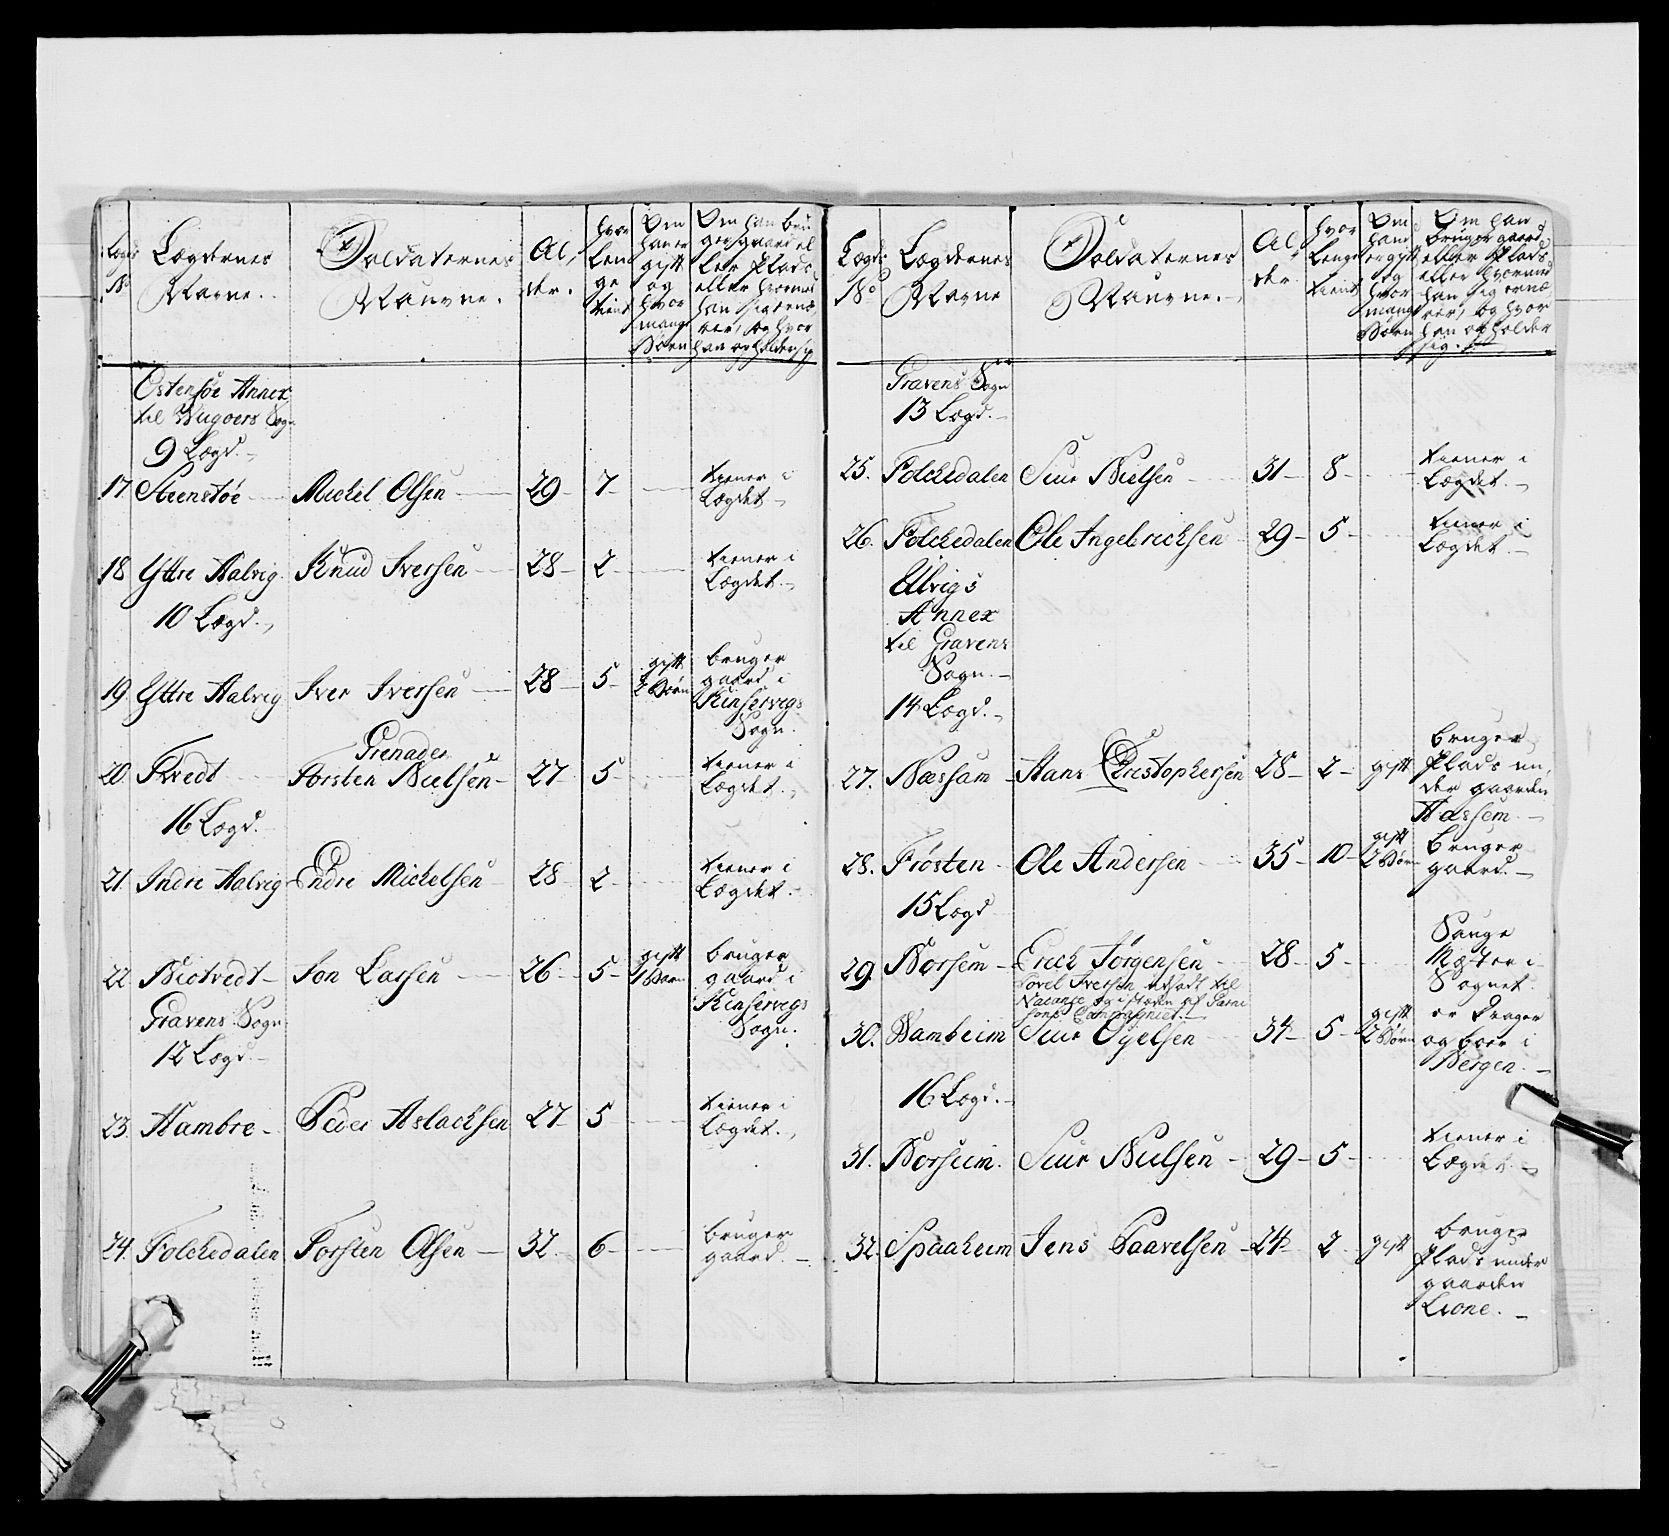 Lægdernes
Nafne.
Soldaternes
Naufne.
Al,
der.
hvor
len
ge
tient
Om
han er
gift
og
hvor
mange
Børn
Om han bru
ger gaard el
ler Plads,
eller hvormed
han sig ernæ
rer, og hvor
han opholder sig
Ostensøe Annex
til Wigøers Sogn
9 Lægd.
17 Steenstøe Mickel Olsen 29 7 tiener i
Lægdet.
18 Yttre Aalvig Knud Iversen 28 2 tiener i
Lægdet.
10 Lægd.
19. Yttre Aalvig Iver Iversen 28 5 gift
2 Børn
bruger
gaard i
Kinservigs
Sogn.
Grenader
20. Kvedt Torsten Nielsen 27 5 tiener i
Lægdet.
16 Lægd.
21. Indre Aalvig Endre Mickelsen 28 2 tiener i
Lægdet.
22. Biotvedt Jon Larsen 26 5 gift
1 Barn
bruger
gaard i
Kinservigs
Sogn.
Gravens Sogn
12 Lægd.
23. Hambre Peder Aslachsen 27 5 tiener i
Lægdet.
24. Folckedalen Torsten Olsen 32 6 bruger
gaard.
Lægd:
No
Lægdernes
Nafne
Soldaternes
Naufne.
Al
der.
hvor
lenge
tient
Om
hand
er gift
og
hvor
mange
Børn
Om han
bruger gaard
eller Plads
eller hvormed
han sig ernæ
rer, og hvor
han opholder
sig.
Gravens Sogn
13 Lægd.
25. Folckedalen Siur Nielsen 31 8 tiener i
Lægdet.
26. Folckedalen Ole Ingebricksen 29 5 tiener i
Lægdet.
Ulvigs
Annex
til Gravens
Sogn.
14 Lægd.
27. Næssam Hans Christophersen 28 2 gift bruger
Plads un
der gaarden
Hæssem.
28. Frøsten Ole Andersen 35 10 gift
2 Børn
bruger
gaard.
15 Lægd
29. Norsem Erick Jørgensen 28 5 Sauge
Mæster i
Sognet.
Povel Iversen udsadt til
Vacance og i steden af Garni
sons Compagniet.
30. Wambeim Siur Oyelsen 34 5 gift
2 Børn
er Drager
og boer i
Bergen.
16 Lægd.
31. Norseim. Siur Nielsen 29 5 tiener i
Lægdet.
32. Spaaheim Jens Paavelsen 24 2 gift bruger
Plads under
gaarden
Lione.